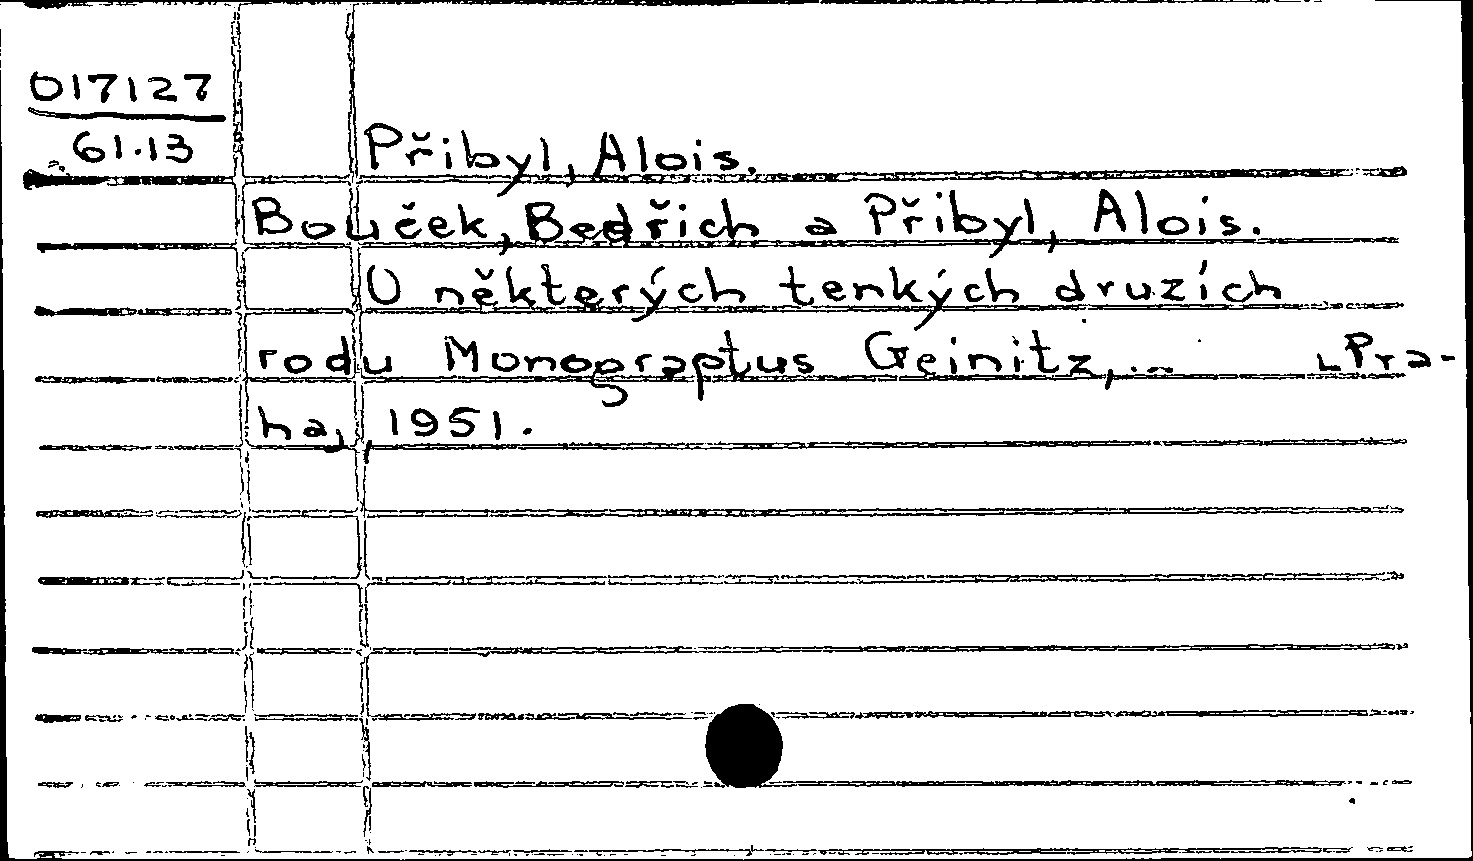 017127
61.13
Přibyl, Alois.
Bouček, Bedřich a Přibyl, Alois.
U některých tenkých druzích
rodu Monograptus Geinitz,... Pra-
ha, 1951.